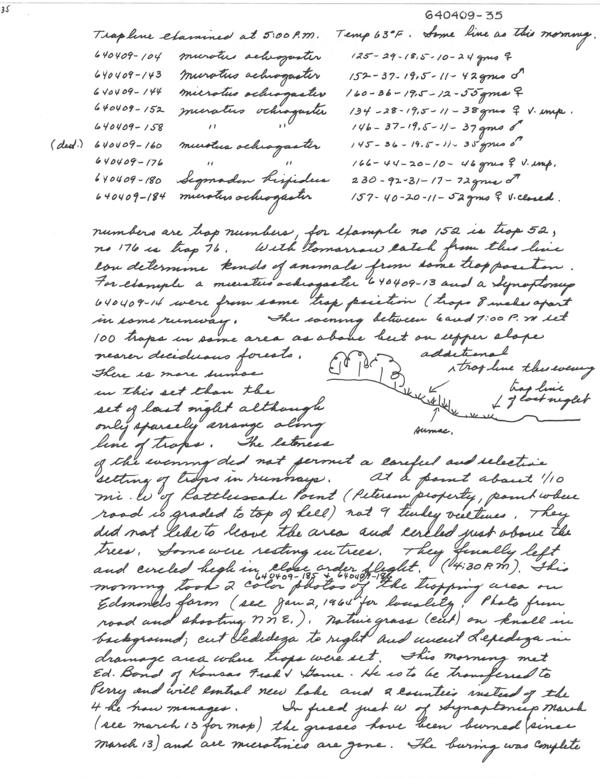 35
640409-35
Trapline examined at 5:00 P.M. Temp 63°F. Same line as this morning.
640409-104 microtus ochrogaster 125-29-18.5-10-24 gms ♀
640409-143 Microtus ochrogaster 152-37-19.5-11-42 gms ♂
640409-144 microtus ochrogaster 160-36-19.5-12-55 gms ♀
640409-152 microtus ochrogaster 134-28-19.5-11-38 gms ♀ v. imp.
640409-158 " " 146-37-19.5-11-37 gms ♂
(ded.) 640409-160 microtus ochrogaster 145-36-19.5-11-35 gms ♂
640409-176 " " 166-44-20-10-46 gms ♀ v. imp.
640409-180 Sigmodon hispidus 230-92-31-17-72 gms ♂
640409-184 microtus ochrogaster 157-40-20-11-52 gms ♀ v. closed.
numbers are trap numbers, for example no 152 is trap 52,
no 176 is trap 76. With tomorrow catch from this line
can determine kinds of animals from same trap position.
For example a microtus ochrogaster 640409-13 and a Synaptomys
640409-14 were from same trap position (traps 8 inches apart
in same runway. This evening between 6 and 7:00 P.M set
100 traps in same area as above but on upper slope
nearer deciduous forests.
additional
trap line this evening
There is more sumac
in this set than the
trap line
of last night
set of last night although
only sparsely arrange along
sumac.
line of traps. The lateness
of the evening did not permit a careful and selective
setting of traps in runways. At a point about 1/10
mi. W of Rattlesnake Point (Peterson property, point where
road is graded to top of hill) not 9 turkey vultures. They
did not like to leave the area and circled just above the
trees. Some were resting in trees. They finally left
and circled high in close order flight. (4:30 P.M). This
640409-185 & 640409-186
morning took 2 color photos of the trapping area on
Edmonds farm (see Jan 2, 1964 for locality. Photo from
road and shooting NNE.). Native grass (cut) on knoll in
background; cut Lespedeza to right and uncut Lespedeza in
drainage area where traps were set. This morning met
Ed. Bond of Kansas Fish & Game. He is to be transferred to
Perry and will control new lake and 2 counties instead of the
4 he now manages. In field just W of Synaptomys Marsh
(see march 13 for map) the grasses have been burned (since
march 13) and all microtines are gone. The burning was complete